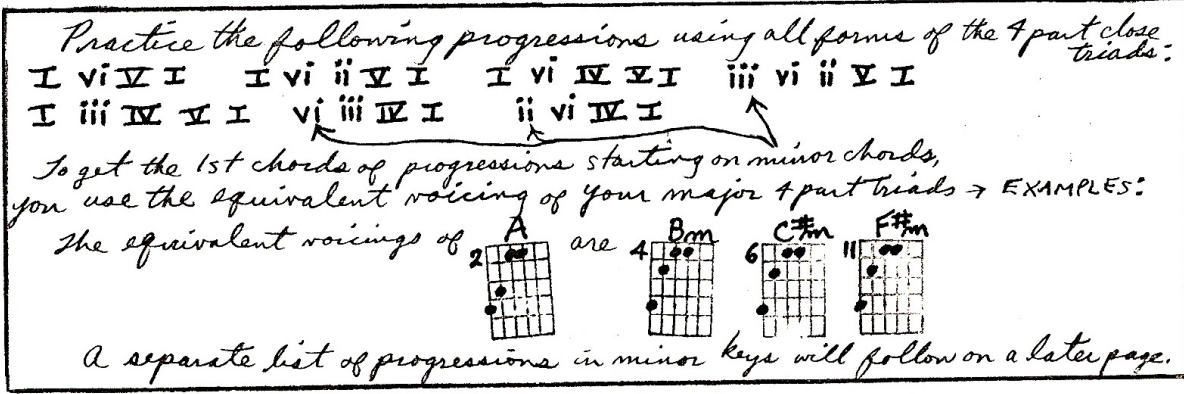 Practice the following progressions using all forms of the 4 part close triads:
I vi V I   I vi ii V I   I vi IV V I   iii vi ii V I
I iii IV V I   vi iii IV I   ii vi IV I
To get the 1st chords of progressions starting on minor chords,
you use the equivalent voicing of your major 4 part triads → EXAMPLES:
The equivalent voicings of A are Bm C#m F#m
2 4 6 11
A separate list of progressions in minor keys will follow on a later page.